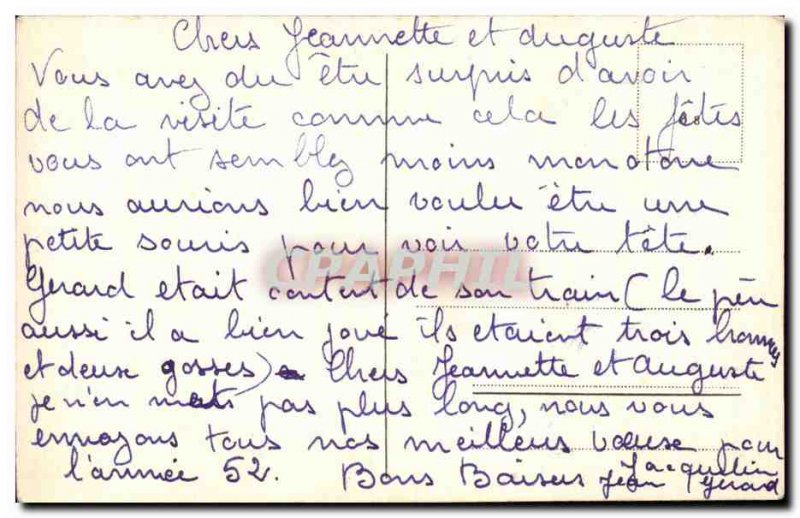 Chers Jeannette et Auguste
Vous avez du être surpris d'avoir
de la visite comme cela les fêtes
vous ont semblez moins monotone
nous aurions bien voulu être une
petite souris pour voir votre tête.
CPAPHIL
Gerard etait content de son train (le père
aussi il a bien joué ils etaient trois hommes
et deux gosses) Chers Jeannette et Auguste
je n'en mets pas plus long, nous vous
envoyons tous nos meilleurs voeux pour
l'année 52. Bons Baisers Jacqueline
Jean Gerard